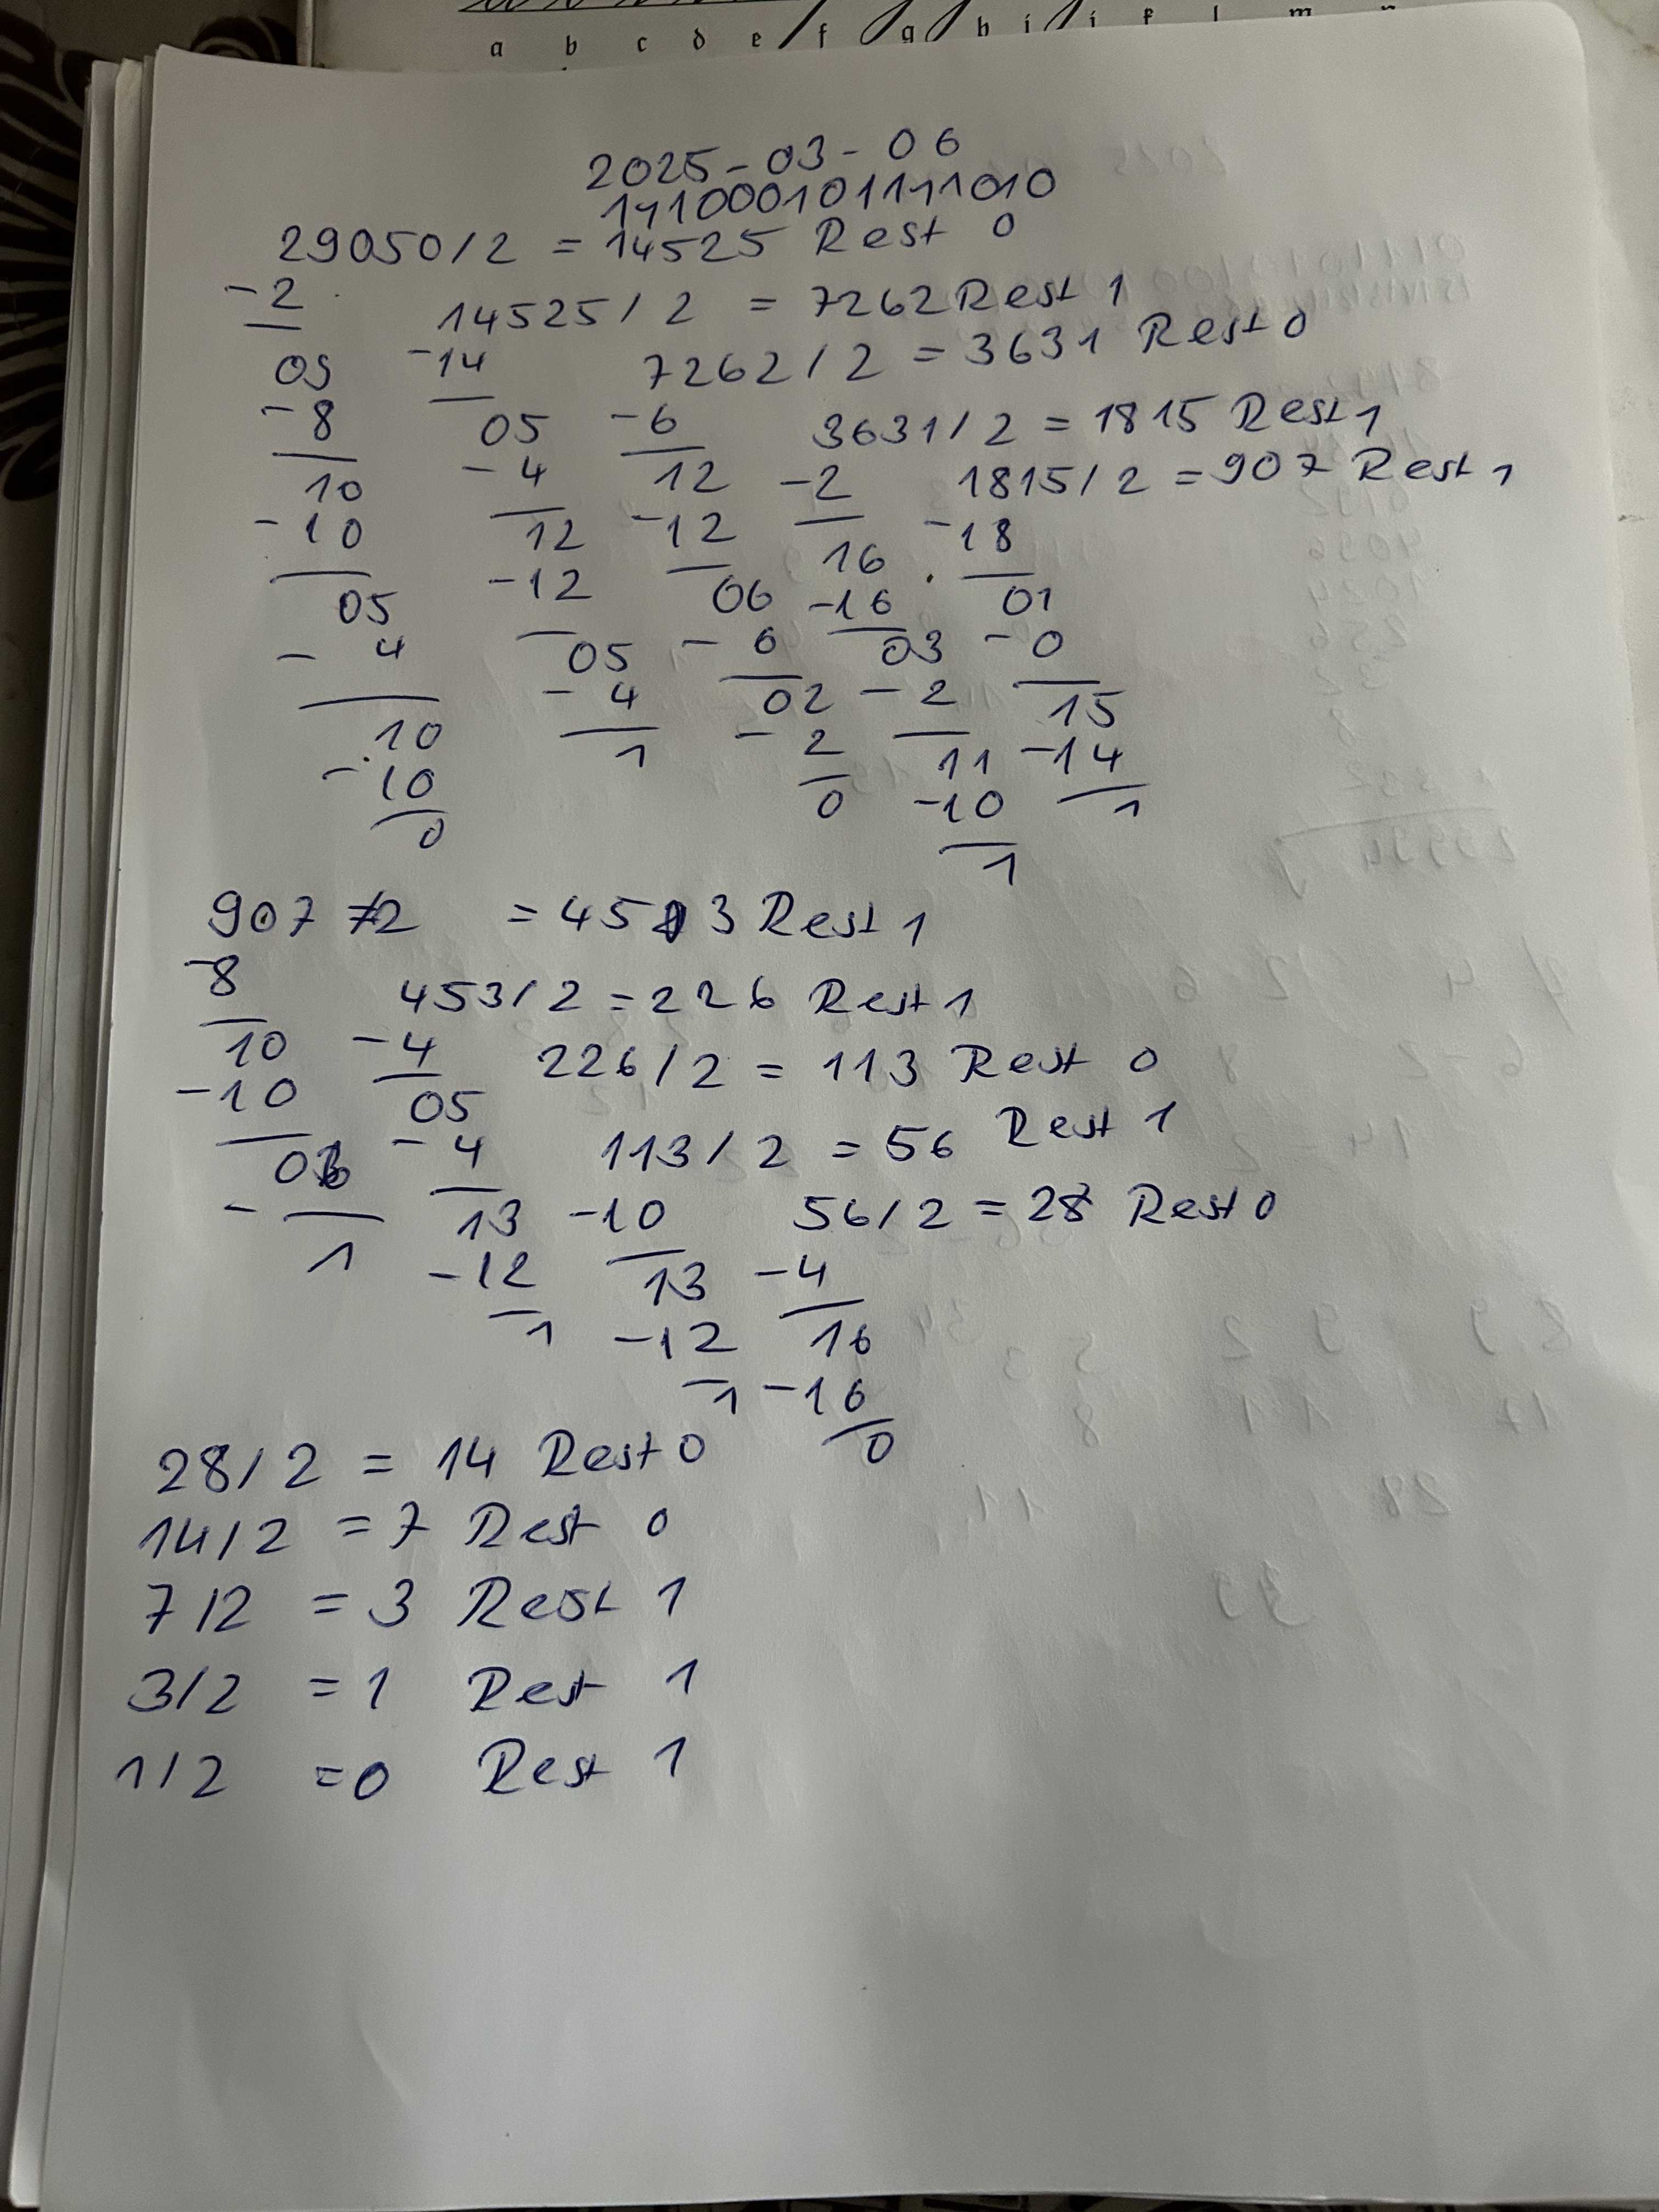 a b c d e f g h i j
2025-03-06
111000101111010
29050/2 = 14525 Rest 0
-2 14525/2 = 7262 Rest 1
05 -14 7262/2 = 3631 Rest 0
-8 05 -6 3631/2 = 1815 Rest 1
10 -4 12 -2 1815/2 = 907 Rest 1
-10 12 -12 16 -18
05 -12 06 -16 01
-4 05 -6 03 -0
10 -4 02 -2 15
-10 1 -2 11 -14
0 0 -10 1
1
907/2 = 453 Rest 1
-8 453/2 = 226 Rest 1
10 -4 226/2 = 113 Rest 0
-10 05 113/2 = 56 Rest 1
0 -4 56/2 = 28 Rest 0
- 13 -10 -4
1 -12 13 16
1 -12 -16
1 0
28/2 = 14 Rest 0
14/2 = 7 Rest 0
7/2 = 3 Rest 1
3/2 = 1 Rest 1
1/2 = 0 Rest 1